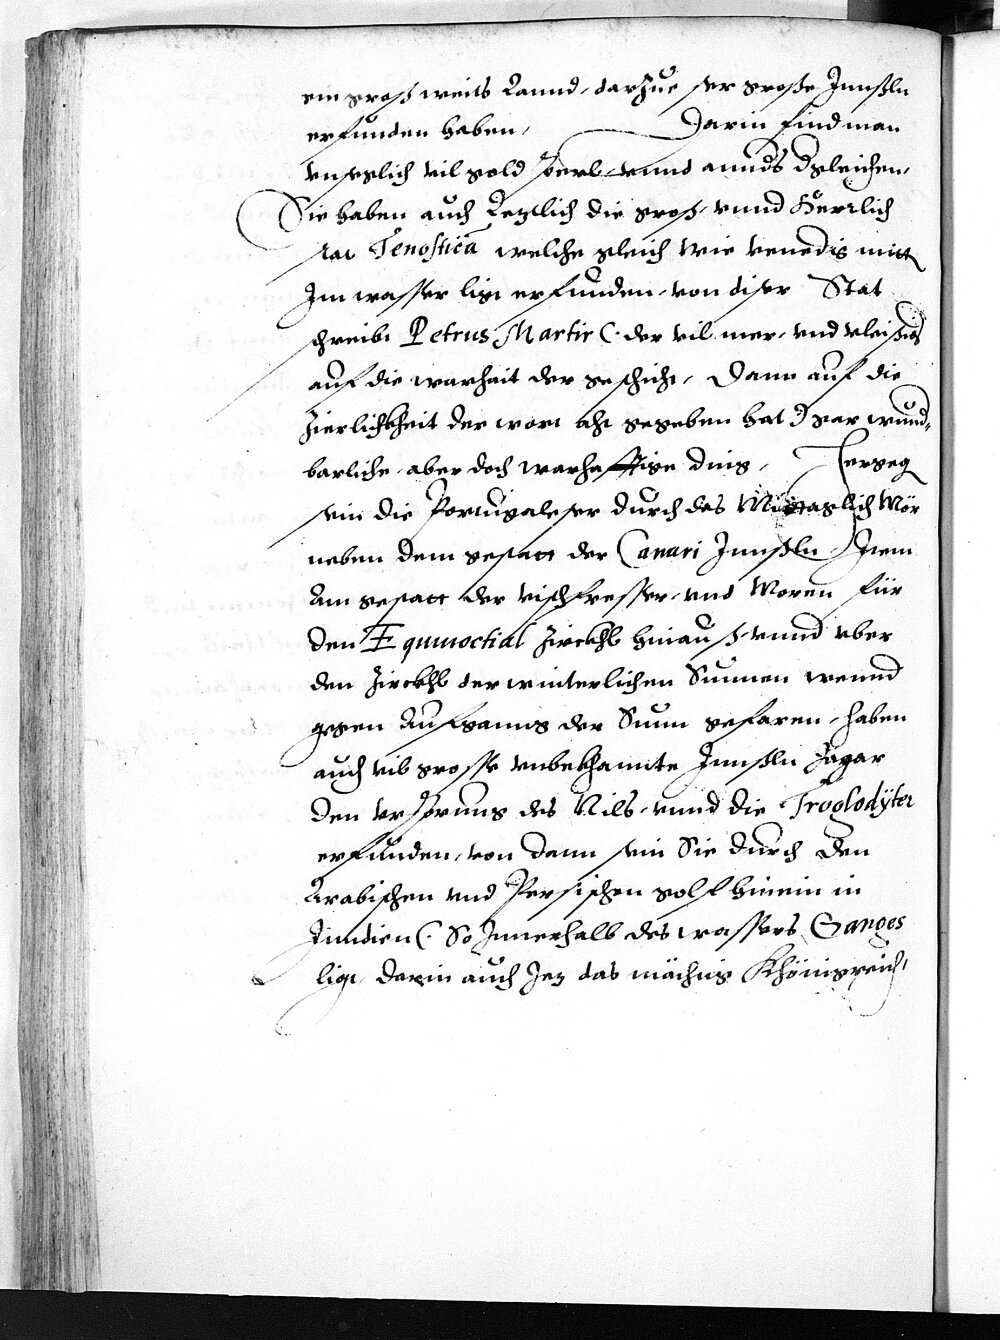 ein gros weits Lannd, darzue ser grosse Innsln
erfunden haben, Darin findt man
vnseglich vil gold Perl vnnd annders dgleichen,
Sie haben auch Lezlich die gros, vnnd Herrlich
stat Tenostica welche gleich wie venedig mitt
Im wasser ligt erfunden, von diser Stat
schreibt Petrus Martir (der vil mer, vnd vleissig
auf die warheit der geschicht, Dann auf die
Zierlichkheit der wort acht gegeben hat) gar wund-
barliche, aber doch warhafftige ding, Hergeg
sein die Portugaleser durch das Mittaglich Mör
neben dem gestatt der Canari Innsln, Item
Am gestatt der vischfresser, vnd Moren für
den Equinoctial Zirckhl hinaus, vnnd vber
den Zirckhl der winterlichen Sunnen wennd
gegen Aufganng der Sunn gefaren, haben
auch vil grosse vnbekhannte Innsln Zagar
den vrsprung des Nils, vnnd die Troglodÿter
erfunden, von dann sein Sie durch den
Arabischen vnd Persischen golf hinein in
Inndien (So Innerhalb des wassers Ganges
ligt, darin auch Iez das mächtig Khönigreich,